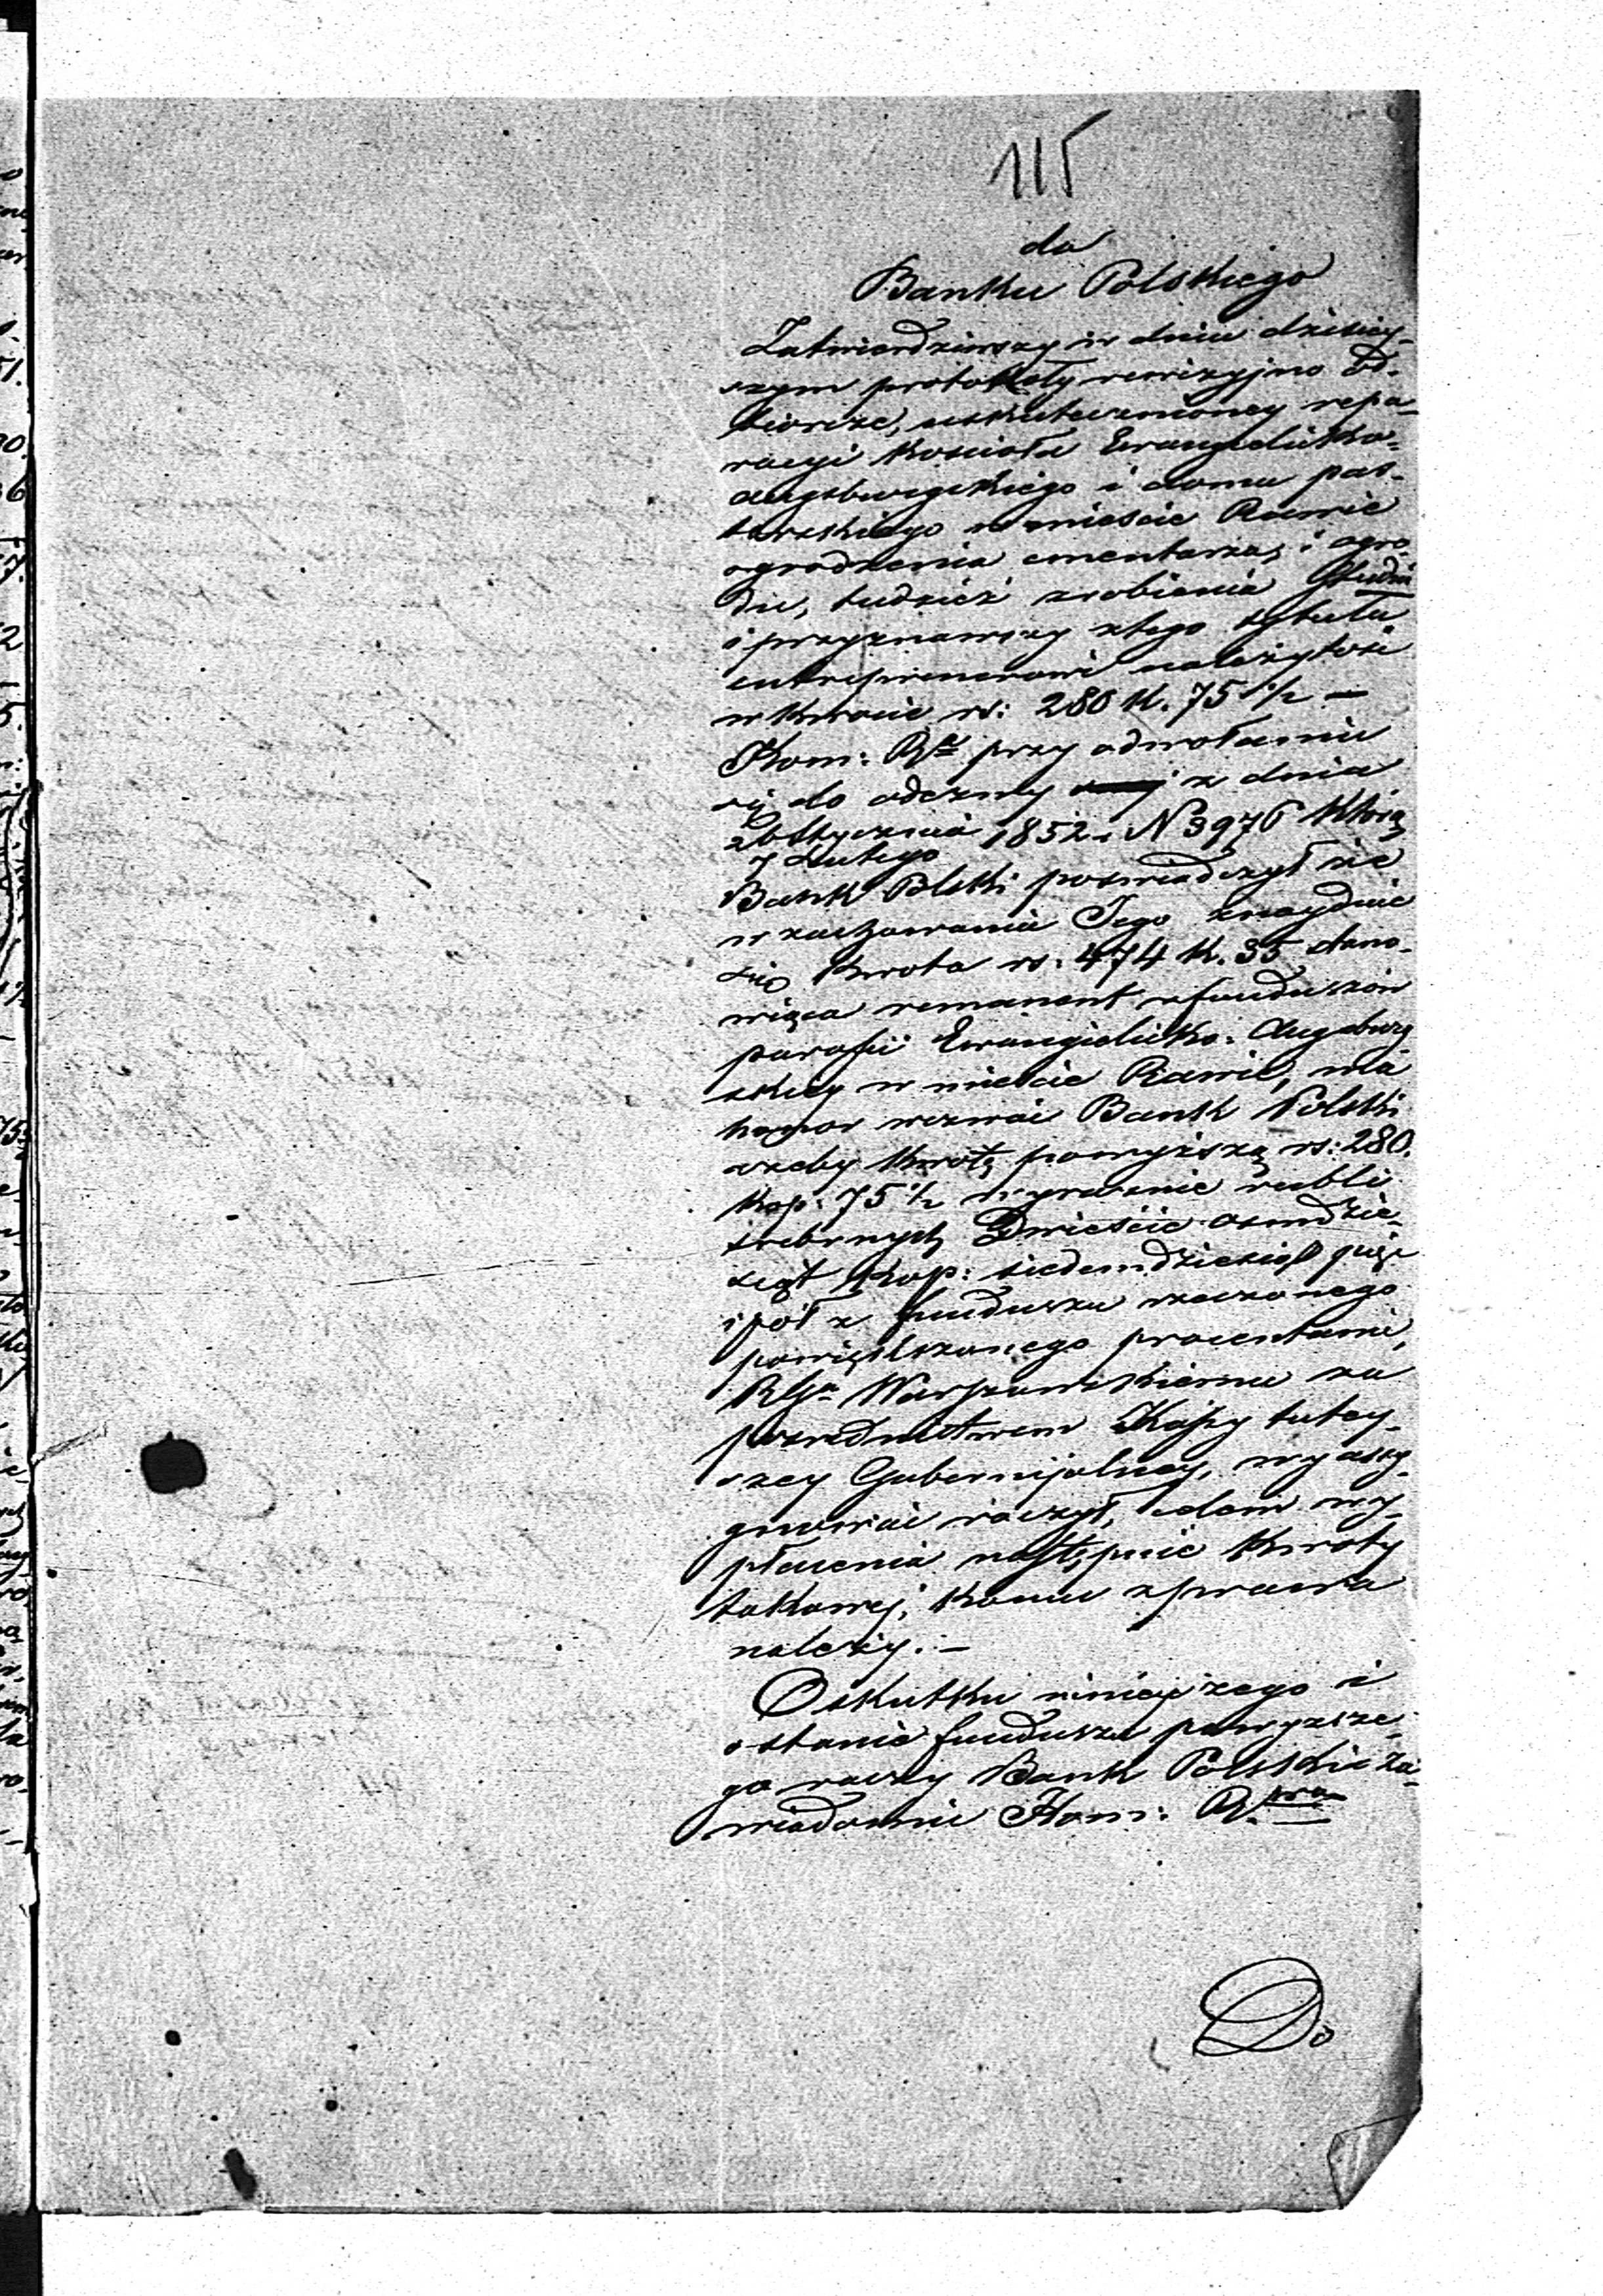 115
do
Banku Polskiego
Zatwierdziwszy w dniu dzisiey-
szym protokóły rewizyjno od-
biorcze, uskutecznioney repa-
racyi Kościoła Ewangelicko-
augsburgskiego i domu pas-
torskiego w mieście Rawie
ogrodzenia cmentarza, i ogro-
du, tudzież zrobienia Studni
i przyznawszy z tego tytułu
entreprenerowi należytość
w kwocie rs: 280 k. 75 1/2 —
Kom: Rz przy odwołaniu
się do odezwy z dnia
26 Stycznia 1852 r. N 3976 którą
7 Lutego
Bank Polski poświadczył że
w zachowaniu Jego znayduie
się kwota rs: 474 k. 35 stano-
wiąca remanent z funduszów
parafii Ewangielicko: Augsburg
skiey w mieście Rawie, ma
honor wezwać Bank Polski
ażeby kwotę powyższą rs: 280.
kop: 75 1/2 wyraźnie rubli
srebrnych Dwieście osmdzie-
siąt kop: siedemdziesiąt pięć
i pół z funduszu rzeczonego
powiększonego procentami,
Warszawskiemu za
pośrednictwem Kassy tutey-
szey Gubernijalney, wyassy-
gnować raczył, celem wy-
płacenia następnie kwoty
takowej, komu z prawa
należy. —
O skutku niniejszego i
o stanie funduszu powyższe-
go raczy Bank Polski za-
wiadomić Kom: Rz
Do